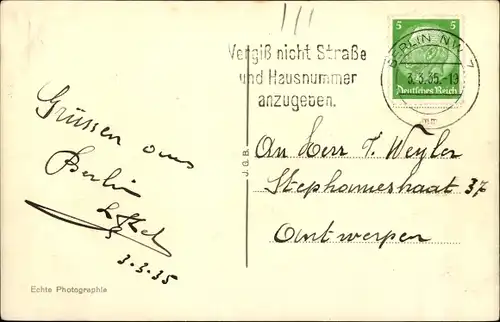 Vergiß nicht Straße
und Hausnummer
angegeben.
5 5
BERLIN NW 7
3.3.35.-19
mm
Deutsches Reich
Grüssen aus
Berlin
3.3.35
Echte Photographie
J.d.B.
An Herr T. Weyler
Stephaniestraat 37
Antwerpen